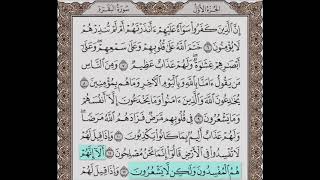 الجزء الأول سورة البقرة
إِنَّ ٱلَّذِينَ كَفَرُواْ سَوَآءٌ عَلَيْهِمْ ءَأَنذَرْتَهُمْ أَمْ لَمْ تُنذِرْهُمْ
لَا يُؤْمِنُونَ ٦ خَتَمَ ٱللَّهُ عَلَىٰ قُلُوبِهِمْ وَعَلَىٰ سَمْعِهِمْ وَعَلَىٰٓ
أَبْصَٰرِهِمْ غِشَٰوَةٌ وَلَهُمْ عَذَابٌ عَظِيمٌ ٧ وَمِنَ ٱلنَّاسِ
مَن يَقُولُ ءَامَنَّا بِٱللَّهِ وَبِٱلْيَوْمِ ٱلْأٓخِرِ وَمَا هُم بِمُؤْمِنِينَ ٨
يُخَٰدِعُونَ ٱللَّهَ وَٱلَّذِينَ ءَامَنُواْ وَمَا يَخْدَعُونَ إِلَّآ أَنفُسَهُمْ
وَمَا يَشْعُرُونَ ٩ فِي قُلُوبِهِم مَّرَضٌ فَزَادَهُمُ ٱللَّهُ مَرَضًا
وَلَهُمْ عَذَابٌ أَلِيمٌۢ بِمَا كَانُواْ يَكْذِبُونَ ١٠ وَإِذَا قِيلَ لَهُمْ
لَا تُفْسِدُواْ فِي ٱلْأَرْضِ قَالُوٓاْ إِنَّمَا نَحْنُ مُصْلِحُونَ ١١ أَلَآ إِنَّهُمْ
هُمُ ٱلْمُفْسِدُونَ وَلَٰكِن لَّا يَشْعُرُونَ ١٢ وَإِذَا قِيلَ لَهُمْ